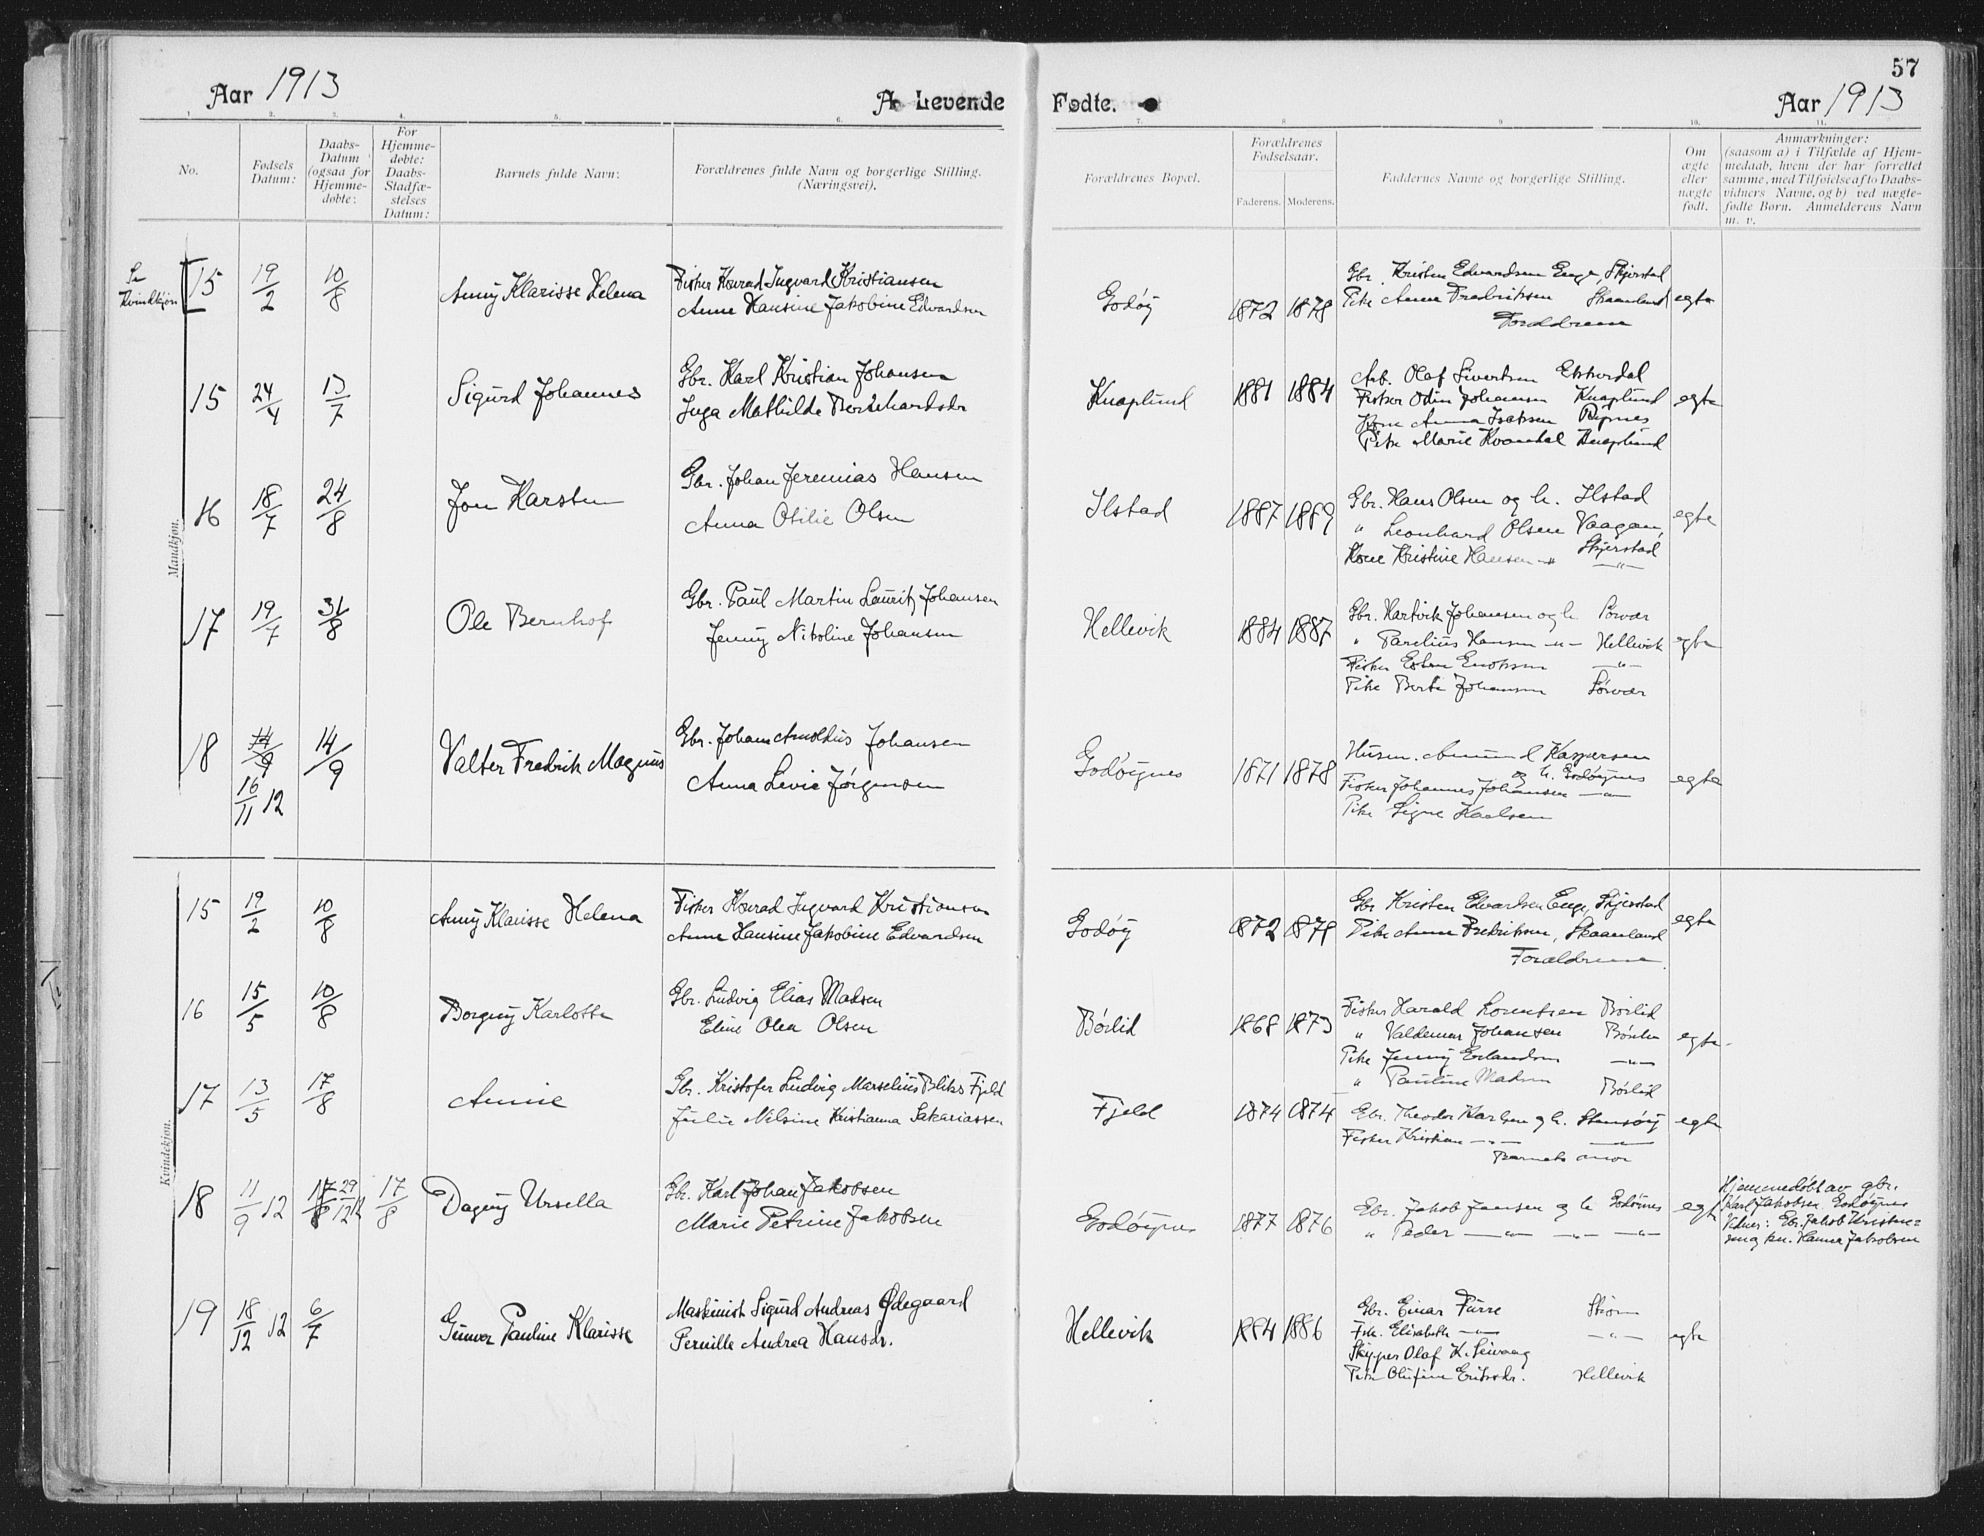 57
Aar 1913
A. Levende Fødte.
Aar 1913
1. 2. 3. 4. 5. 6. 7. 8. 9. 10. 11.
No.
Fødsels Datum:
Daabs-Datum (ogsaa for Hjemme-døbte:
For Hjemme-døbte: Daabs-Stadfæ-stelses Datum:
Barnets fulde Navn:
Forældrenes fulde Navn og borgerlige Stilling. (Næringsvei).
Forældrenes Bopæl.
Forældrenes Fødselsaar.
Faderens. Moderens.
Faddernes Navne og borgerlige Stilling.
Om ægte eller uægte født.
Anmærkninger:
(saasom a) i Tilfælde af Hjem-
medaab, hvem der har forrettet
samme, med Tilføielse af to Daabs-
vidners Navne, og b) ved uægte-
fødte Børn. Anmelderens Navn
m. v.
Mandkjøn.
Se Kvindkjøn
15 19/2 10/8 Anny Klarisse Helena
Fisker Konrad Ingvard Kristiansen
Anne Hansine Jakobine Edvardsen
Godøy 1872 1878
Gbr. Kristen Edvardsen Enge, Skjerstad
Pike Anna Fredriksen Skaanland
Forældrene
egte
15 24/4 13/7 Sigurd Johannes
Gbr. Karl Kristian Johansen
Inga Mathilde Bernhardsdr
Knaplund 1881 1884
Arb. Olaf Sivertsen
Fisker Odin Johansen Knaplund
Kone Anna Isaksen
Pike Marie Kvandal Knaplund
egte
16 18/7 24/8 Jon Karsten
Gbr. Johan Jeremias Hansen
Anna Otilie Olsen
Ilstad 1887 1889
Gbr. Hans Olsen og h. Ilstad
" Leonhard Olsen Vaagan, Skjerstad
Kone Kristine Hansen -"- -"-
egte
17 19/7 31/8 Ole Bernhof
Gbr. Paul Martin Lauritz Johansen
Jenny Nikoline Johansen
Hellevik 1884 1887
Gbr. Hartvik Johansen og h. Sørvær
" Parelius Hansen -"- Hellevik
Fisker Esten Enoksen -"-
Pike Berte Johansen Sørvær
egte
18 14/9 16/11 12 14/9 Valter Fredrik Magnus
Gbr. Johan Arnoldus Johansen
Anna Levie Jørgensen
Godøynes 1871 1878
Husm. Amund Kaspersen
og h. Godøynes
Fisker Johannes Johansen -"-
Pike Signe Karlsen
egte
Kvindekjøn.
15 19/2 10/8 Anny Klarisse Helena
Fisker Konrad Ingvard Kristiansen
Anne Hansine Jakobine Edvardsen
Godøy 1872 1878
Gbr Kristen Edvardsen Enge, Skjerstad
Pike Anna Fredriksen, Skaanland
Forældrene.
egte
16 15/5 10/8 Borgny Karlotte
Gbr. Ludvig Elias Madsen
Eline Olea Olsen
Børlid 1868 1873
Fisker Harald Lorentsen Børlid
" Valdemar Johansen
Pike Jenny Erlandsen -"-
" Pauline Madsen Børlid
egte.
17 13/5 17/8 Annie
Gbr. Kristofer Ludvig Marselius Bliks Fjeld
Julie Nilsine Kristianna Sakariassen
Fjeld 1874 1874
Gbr. Theodor Karlsen og h. Stensøy
Fisker Kristian -"- -"-
Barnets mor
egte
18 11/9 12 17/8 29/12 12 17/8 Dagny Ursella
Gbr. Karl Johan Jakobsen
Marie Petrine Jakobsen
Godøynes 1877 1876
Gbr. Jakob Jansen og h. Godøynes
" Peder -"- -"- -"-
egte
Hjemmedøbt av gbr.
Karl Jakobsen Godøynes
Vidner: Gbr. Jakob Kristen=
sen og kn. Hanna Jakobsen
19 18/12 12 6/7 Gunvor Pauline Klarisse
Maskinist Sigurd Andreas Ødegaard
Pernille Andrea Hansdr.
Hellevik 1884 1886
Gbr. Einar Furre Strøm
Frk. Elisabeth -"- -"-
Skipper Olaf K. Seivaag
Pike Olufine Eriksdr. Hellevik
egte